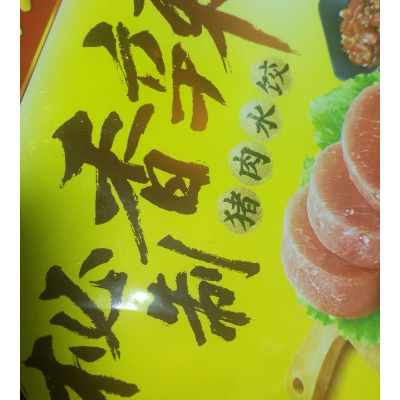 秘制香辣
猪肉水饺